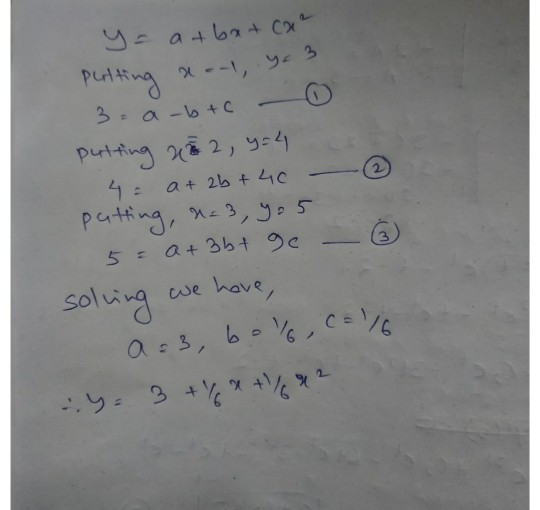 y = a + bx + cx²
putting x = -1, y = 3
3 = a - b + c —— ①
putting x = 2, y = 4
4 = a + 2b + 4c —— ②
putting, x = 3, y = 5
5 = a + 3b + 9c —— ③
solving we have,
a = 3, b = 1/6, c = 1/6
∴ y = 3 + 1/6 x + 1/6 x²